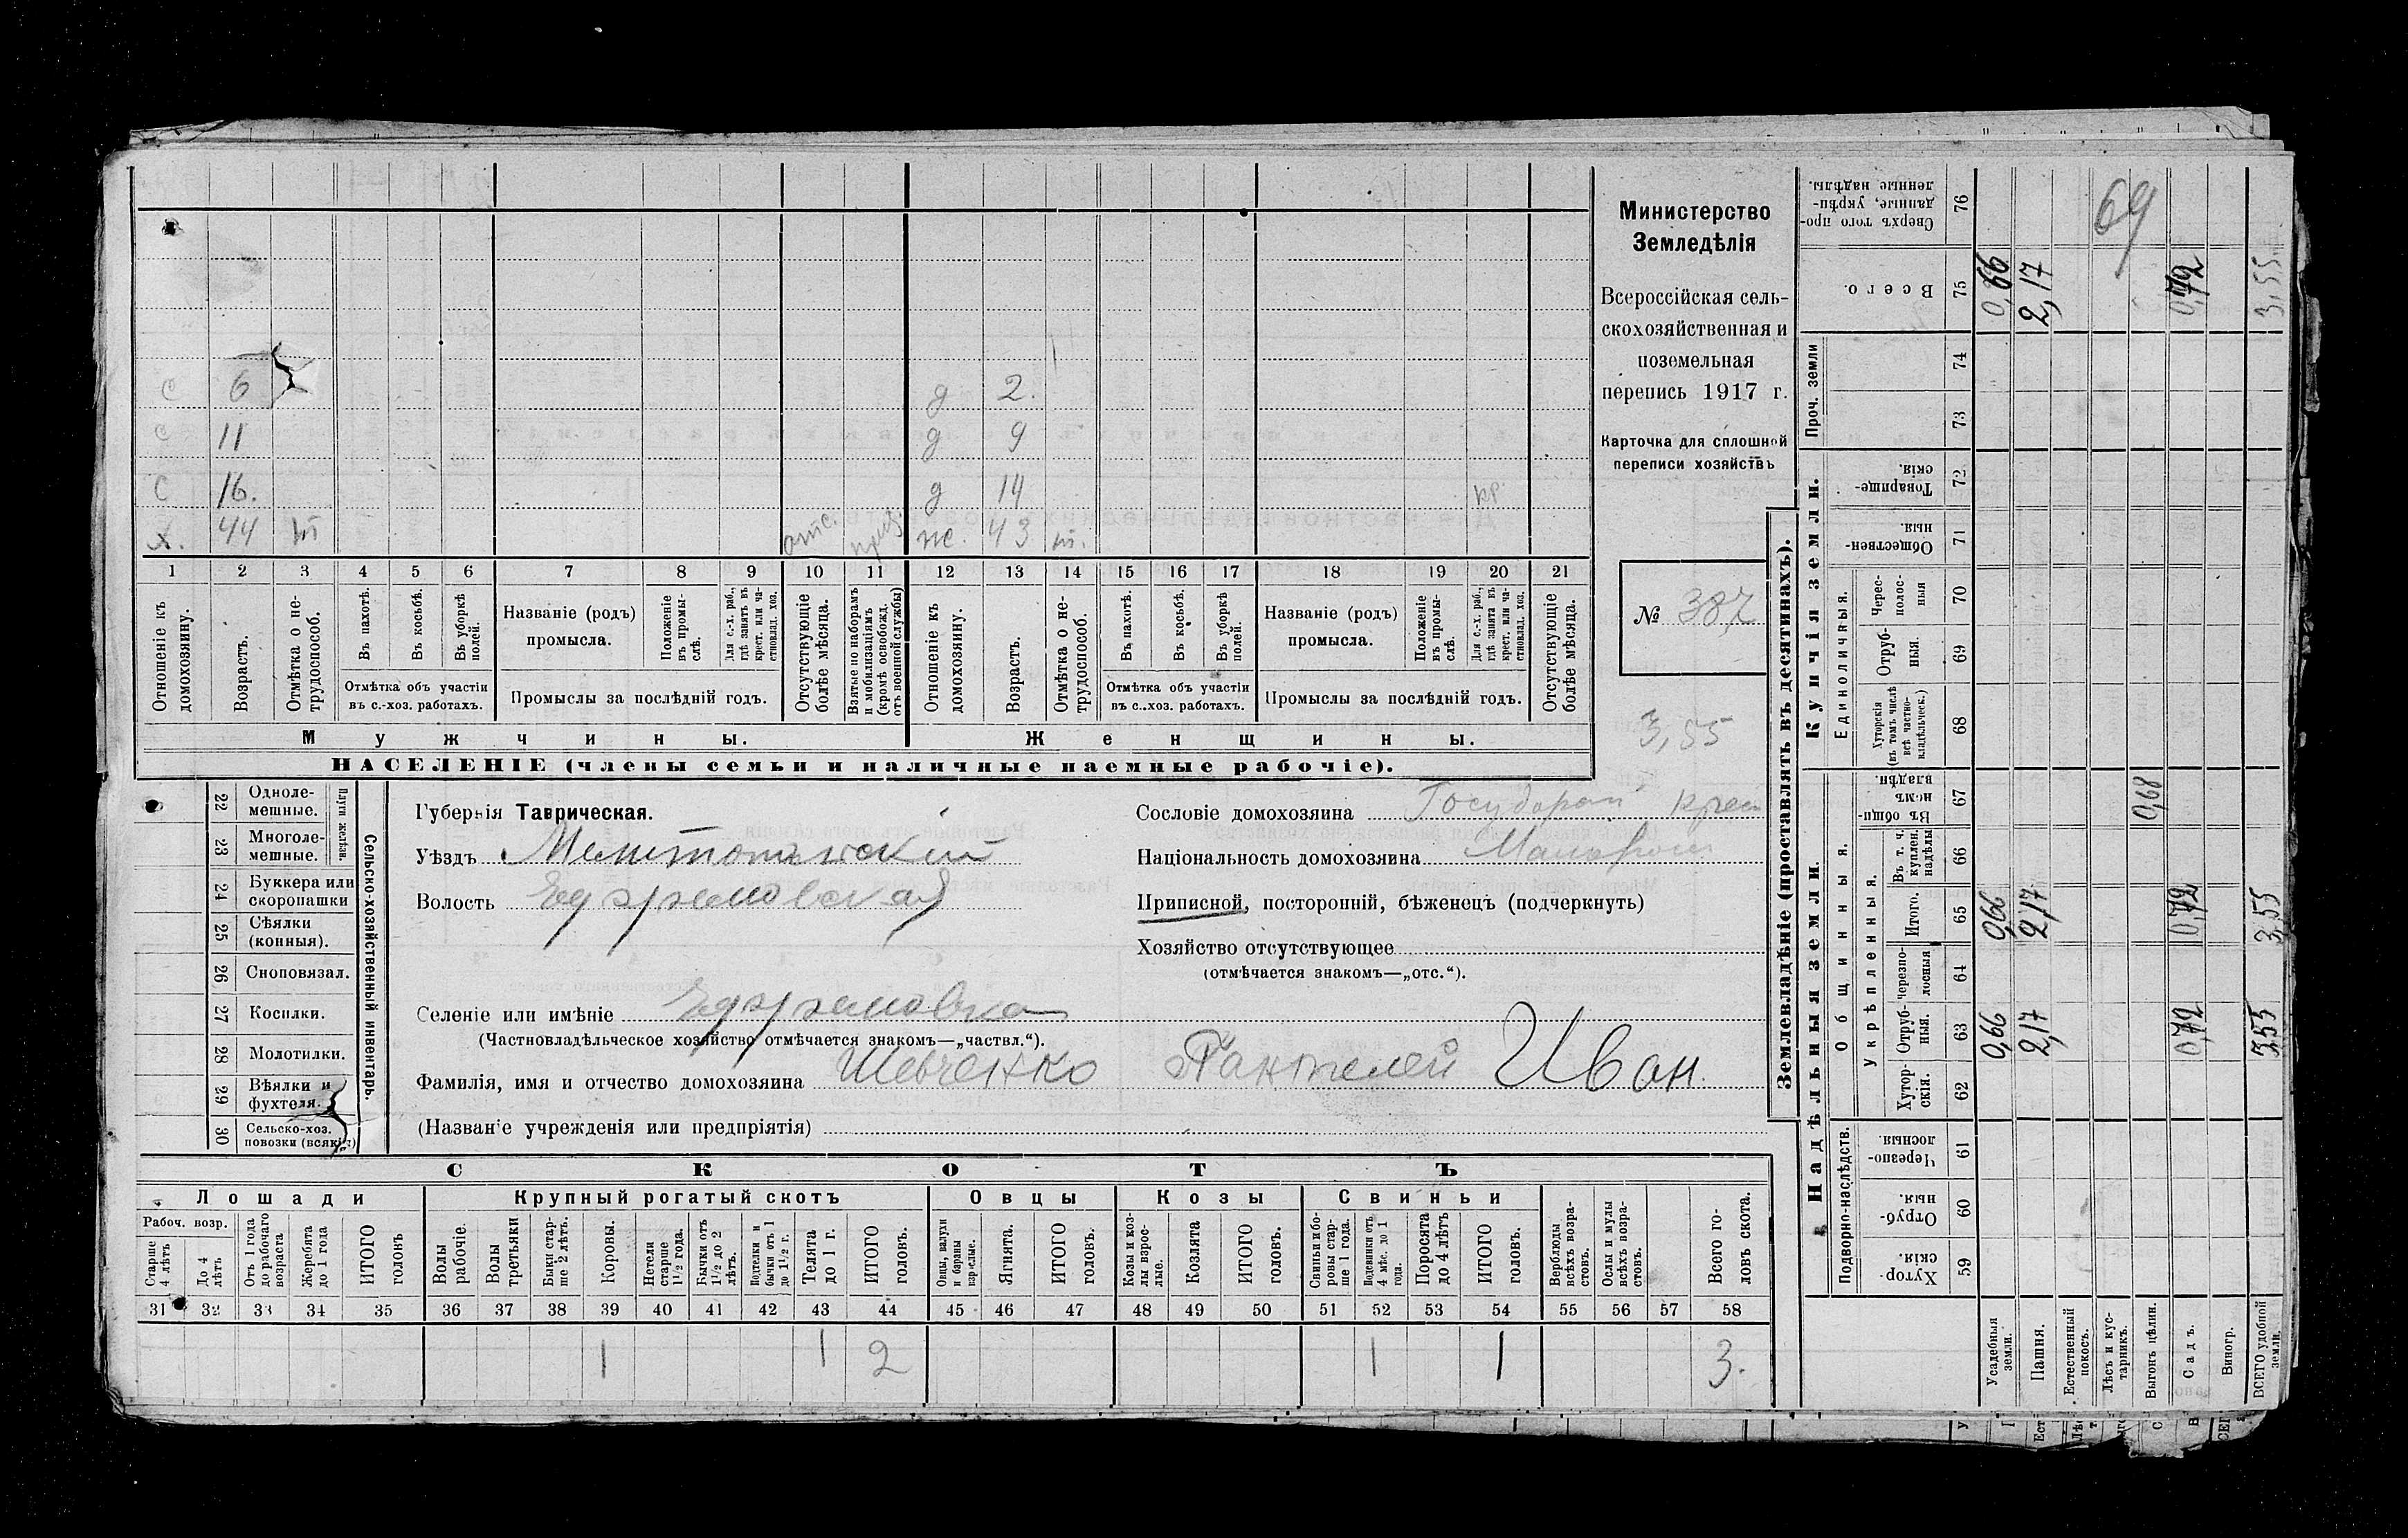 Министерство
Земледѣлія
Всероссійская сель-
скохозяйственная и
поземельная
перепись 1917 г.
Карточка для сплошной
переписи хозяйствъ
№ 387
3,55
69
с 6 д 2.
с 11 д 9
с 16. д 14 кр.
х. 44 т отс. приз ж. 43 т.
1 2 3 4 5 6 7 8 9 10 11 12 13 14 15 16 17 18 19 20 21
Отношеніе къ домохозяину.
Возрастъ.
Отмѣтка о не-трудоспособ.
Въ пахотѣ.
Въ косьбѣ.
Въ уборкѣ полей.
Отмѣтка объ участіи въ с.-хоз. работахъ.
Названіе (родъ) промысла.
Положеніе въ промы-слѣ.
Для с.-х. раб., гдѣ занятъ въ крест. или ча-стновлад. хоз.
Промыслы за послѣдній годъ.
Отсутствующіе болѣе мѣсяца.
Взятые по наборамъ и мобилизаціямъ (кромѣ освобожд. отъ военной службы)
Отношеніе къ домохозяину.
Возрастъ.
Отмѣтка о не-трудоспособ.
Въ пахотѣ.
Въ косьбѣ.
Въ уборкѣ полей.
Отмѣтка объ участіи въ с.-хоз. работахъ.
Названіе (родъ) промысла.
Положеніе въ промы-слѣ.
Для с.-х. раб., гдѣ занята въ крест. или ча-стновлад. хоз.
Промыслы за послѣдній годъ.
Отсутствующіе болѣе мѣсяца.
Мужчины. Женщины.
НАСЕЛЕНІЕ (члены семьи и наличные наемные рабочіе).
Сельско-хозяйственный инвентарь.
Плуги желѣзн.
22 Одноле-мешные.
23 Многоле-мешные.
24 Буккера или скоропашки
25 Сѣялки (конныя).
26 Сноповязал.
27 Косилки.
28 Молотилки.
29 Вѣялки и фухтеля.
30 Сельско-хоз. повозки (всякія)
Губернія Таврическая.
Уѣздъ Мелитопольскій
Волость Ефремовская
Селеніе или имѣніе Ефремовка
(Частновладѣльческое хозяйство отмѣчается знакомъ—„частвл.“).
Фамилія, имя и отчество домохозяина Шевченко Пантелей Иван.
(Названіе учрежденія или предпріятія)
Сословіе домохозяина Государст крест
Національность домохозяина Малорос
Приписной, посторонній, бѣженецъ (подчеркнуть)
Хозяйство отсутствующее
(отмѣчается знакомъ—„отс.“).
СКОТЪ
Лошади Крупный рогатый скотъ Овцы Козы Свиньи
Рабоч. возр.
Старше 4 лѣтъ
До 4 лѣтъ
Отъ 1 года до рабочаго возраста
Жеребята до 1 года
ИТОГО головъ
Волы рабочіе.
Волы третьяки
Быки стар-ше 2 лѣтъ.
Коровы.
Нетели старше 1 1/2 года.
Бычки отъ 1 1/2 до 2 лѣтъ.
Нетелки и бычки отъ 1 до 1 1/2 г.
Телята до 1 г.
ИТОГО головъ.
Овцы, валухи и бараны взрослые.
Ягнята.
ИТОГО головъ.
Козы и коз-лы взрос-лые.
Козлята
ИТОГО головъ.
Свиньи и бо-ровы стар-ше 1 года.
Подсвинки отъ 4 мѣс. до 1 года.
Поросята до 4 лѣтъ
ИТОГО головъ.
Верблюды всѣхъ возра-стовъ.
Ослы и мулы всѣхъ возра-стовъ.
Всего го-ловъ скота.
31 32 33 34 35 36 37 38 39 40 41 42 43 44 45 46 47 48 49 50 51 52 53 54 55 56 57 58
1 1 2 1 1 3.
Землевладѣніе (проставлять въ десятинахъ).
Надѣльныя земли. Купчія земли. Проч. земли
Подворно-наслѣдств.
Общинныя.
Укрѣпленныя.
Единоличныя.
59 Хутор-скія.
60 Отруб-ныя.
61 Черезпо-лосныя
62 Хутор-скія.
63 Отруб-ныя.
64 черезпо-лосныя
65 Итого.
66 Въ т. ч. куплен. надѣлы
67 Въ общи-номъ владѣн.
68 Хуторскія (въ томъ числѣ всѣ частно-владѣльческ.)
69 Отруб-ныя.
70 Черес-полос-ныя
71 Обществен-ныя.
72 Товарище-скія.
73
74
75 Всего.
76 Сверхъ того про-данные, укрѣп-ленные надѣлы.
Усадебныя земли. 0,66 0,66 0,66
Пашня. 2,17 2,17 2,17
Естественный покосъ.
Лѣсъ и кус-тарникъ.
Выгонъ цѣлин. 0,68
Садъ. 0,72 0,72 0,72
Виногр.
ВСЕГО удобной земли. 3,55 3,55 3,55